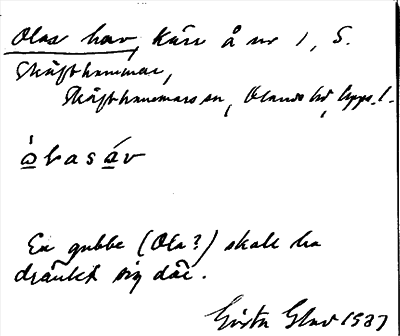 Olas hav, Kärr å nr 1, S.
Skäfthammar,
Skäfthammars sn, Olands hd, Upps. l.
ò̱lasá̱v
En gubbe (Ola?) skall ha
dränkt sig där.
Gösta 1937